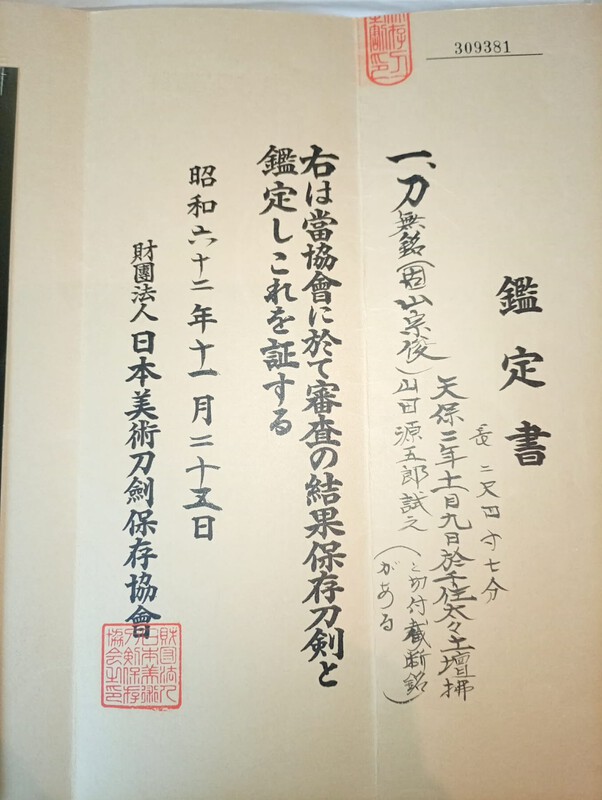 309381
鑑定書
長 二尺四寸七分
一、刀 無銘(固山宗俊)
天保二年十二月九日於千住太々土壇拂
山田源五郎試之
(と切付截断銘がある)
右は當協會に於て審査の結果保存刀剣と
鑑定しこれを証する
昭和六十二年十一月二十五日
財團法人日本美術刀劍保存協會
財団法人日本美術刀剣保存協会之印